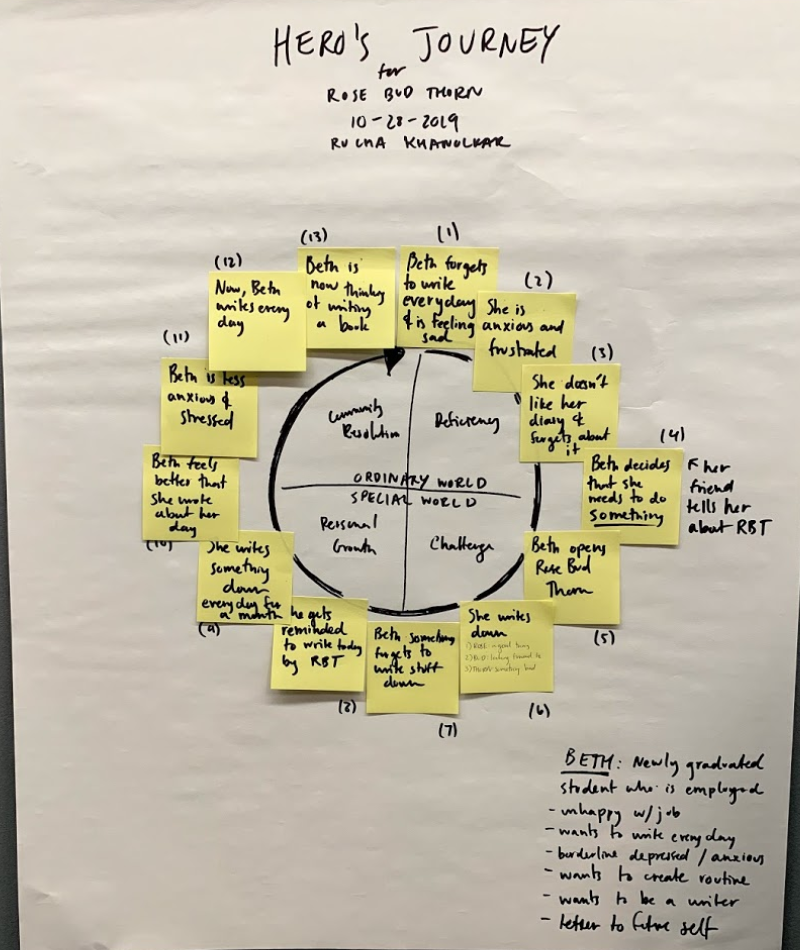 HERO'S JOURNEY
for
ROSE BUD THORN
10-28-2019
RUCHA KHANOLKAR
(1)
Beth forgets
to write
everyday
& is feeling
sad
(2)
She is
anxious and
frustrated
(3)
She doesn't
like her
diary &
forgets about
it
(4)
Beth decides
that she
needs to do
something
her
friend
tells her
about RBT
Beth opens
Rose Bud
Thorn
(5)
She writes
down
1) ROSE: a good thing
2) BUD: looking forward to
3) THORN: something bad
(6)
Beth something
forgets to
write stuff
down
(7)
he gets
reminded
to write today
by RBT
(8)
She writes
something
down
everyday for
a month
(9)
Beth feels
better that
she wrote
about her
day
(10)
(11)
Beth is less
anxious &
stressed
(12)
Now, Beth
writes every
day
(13)
Beth is
now thinking
of writing
a book
Community
Resolution
Deficiency
ORDINARY WORLD
SPECIAL WORLD
Personal
Growth
Challenge
BETH: Newly graduated
student who is employed
- unhappy w/job
- wants to write everyday
- borderline depressed / anxious
- wants to create routine
- wants to be a writer
- letter to future self